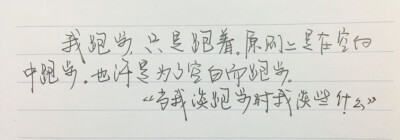 我跑步,只是跑着。原则上是在空白
中跑步。也许是为了空白而跑步。
《当我谈跑步时我谈些什么》